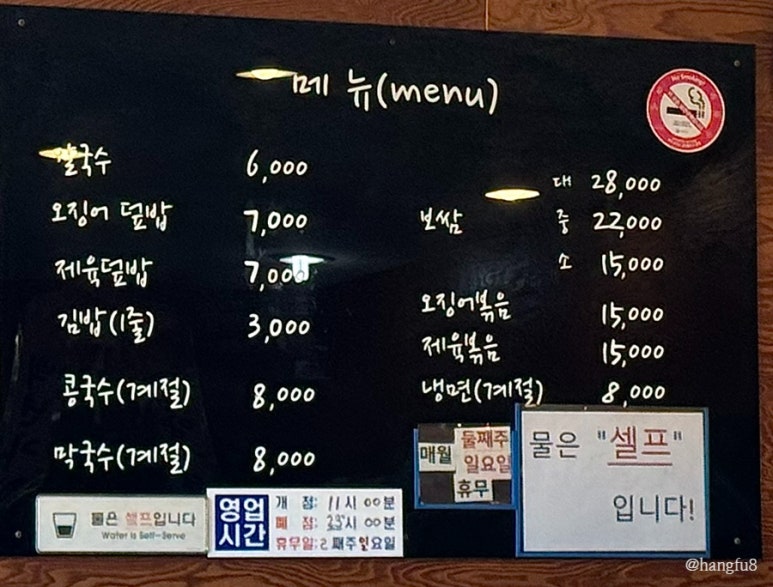 메뉴(menu)
칼국수 6,000
오징어 덮밥 7,000
제육덮밥 7,000
김밥(1줄) 3,000
콩국수(계절) 8,000
막국수(계절) 8,000
보쌈
대 28,000
중 22,000
소 15,000
오징어볶음 15,000
제육볶음 15,000
냉면(계절) 8,000
No Smoking!
물은 셀프입니다
Water is Self-Serve
영업시간
개 점: 11시 00분
폐 점: 23시 00분
휴무일: 2째주일요일
매월 둘째주
일요일
휴무
물은 "셀프"
입니다!
@hangfu8